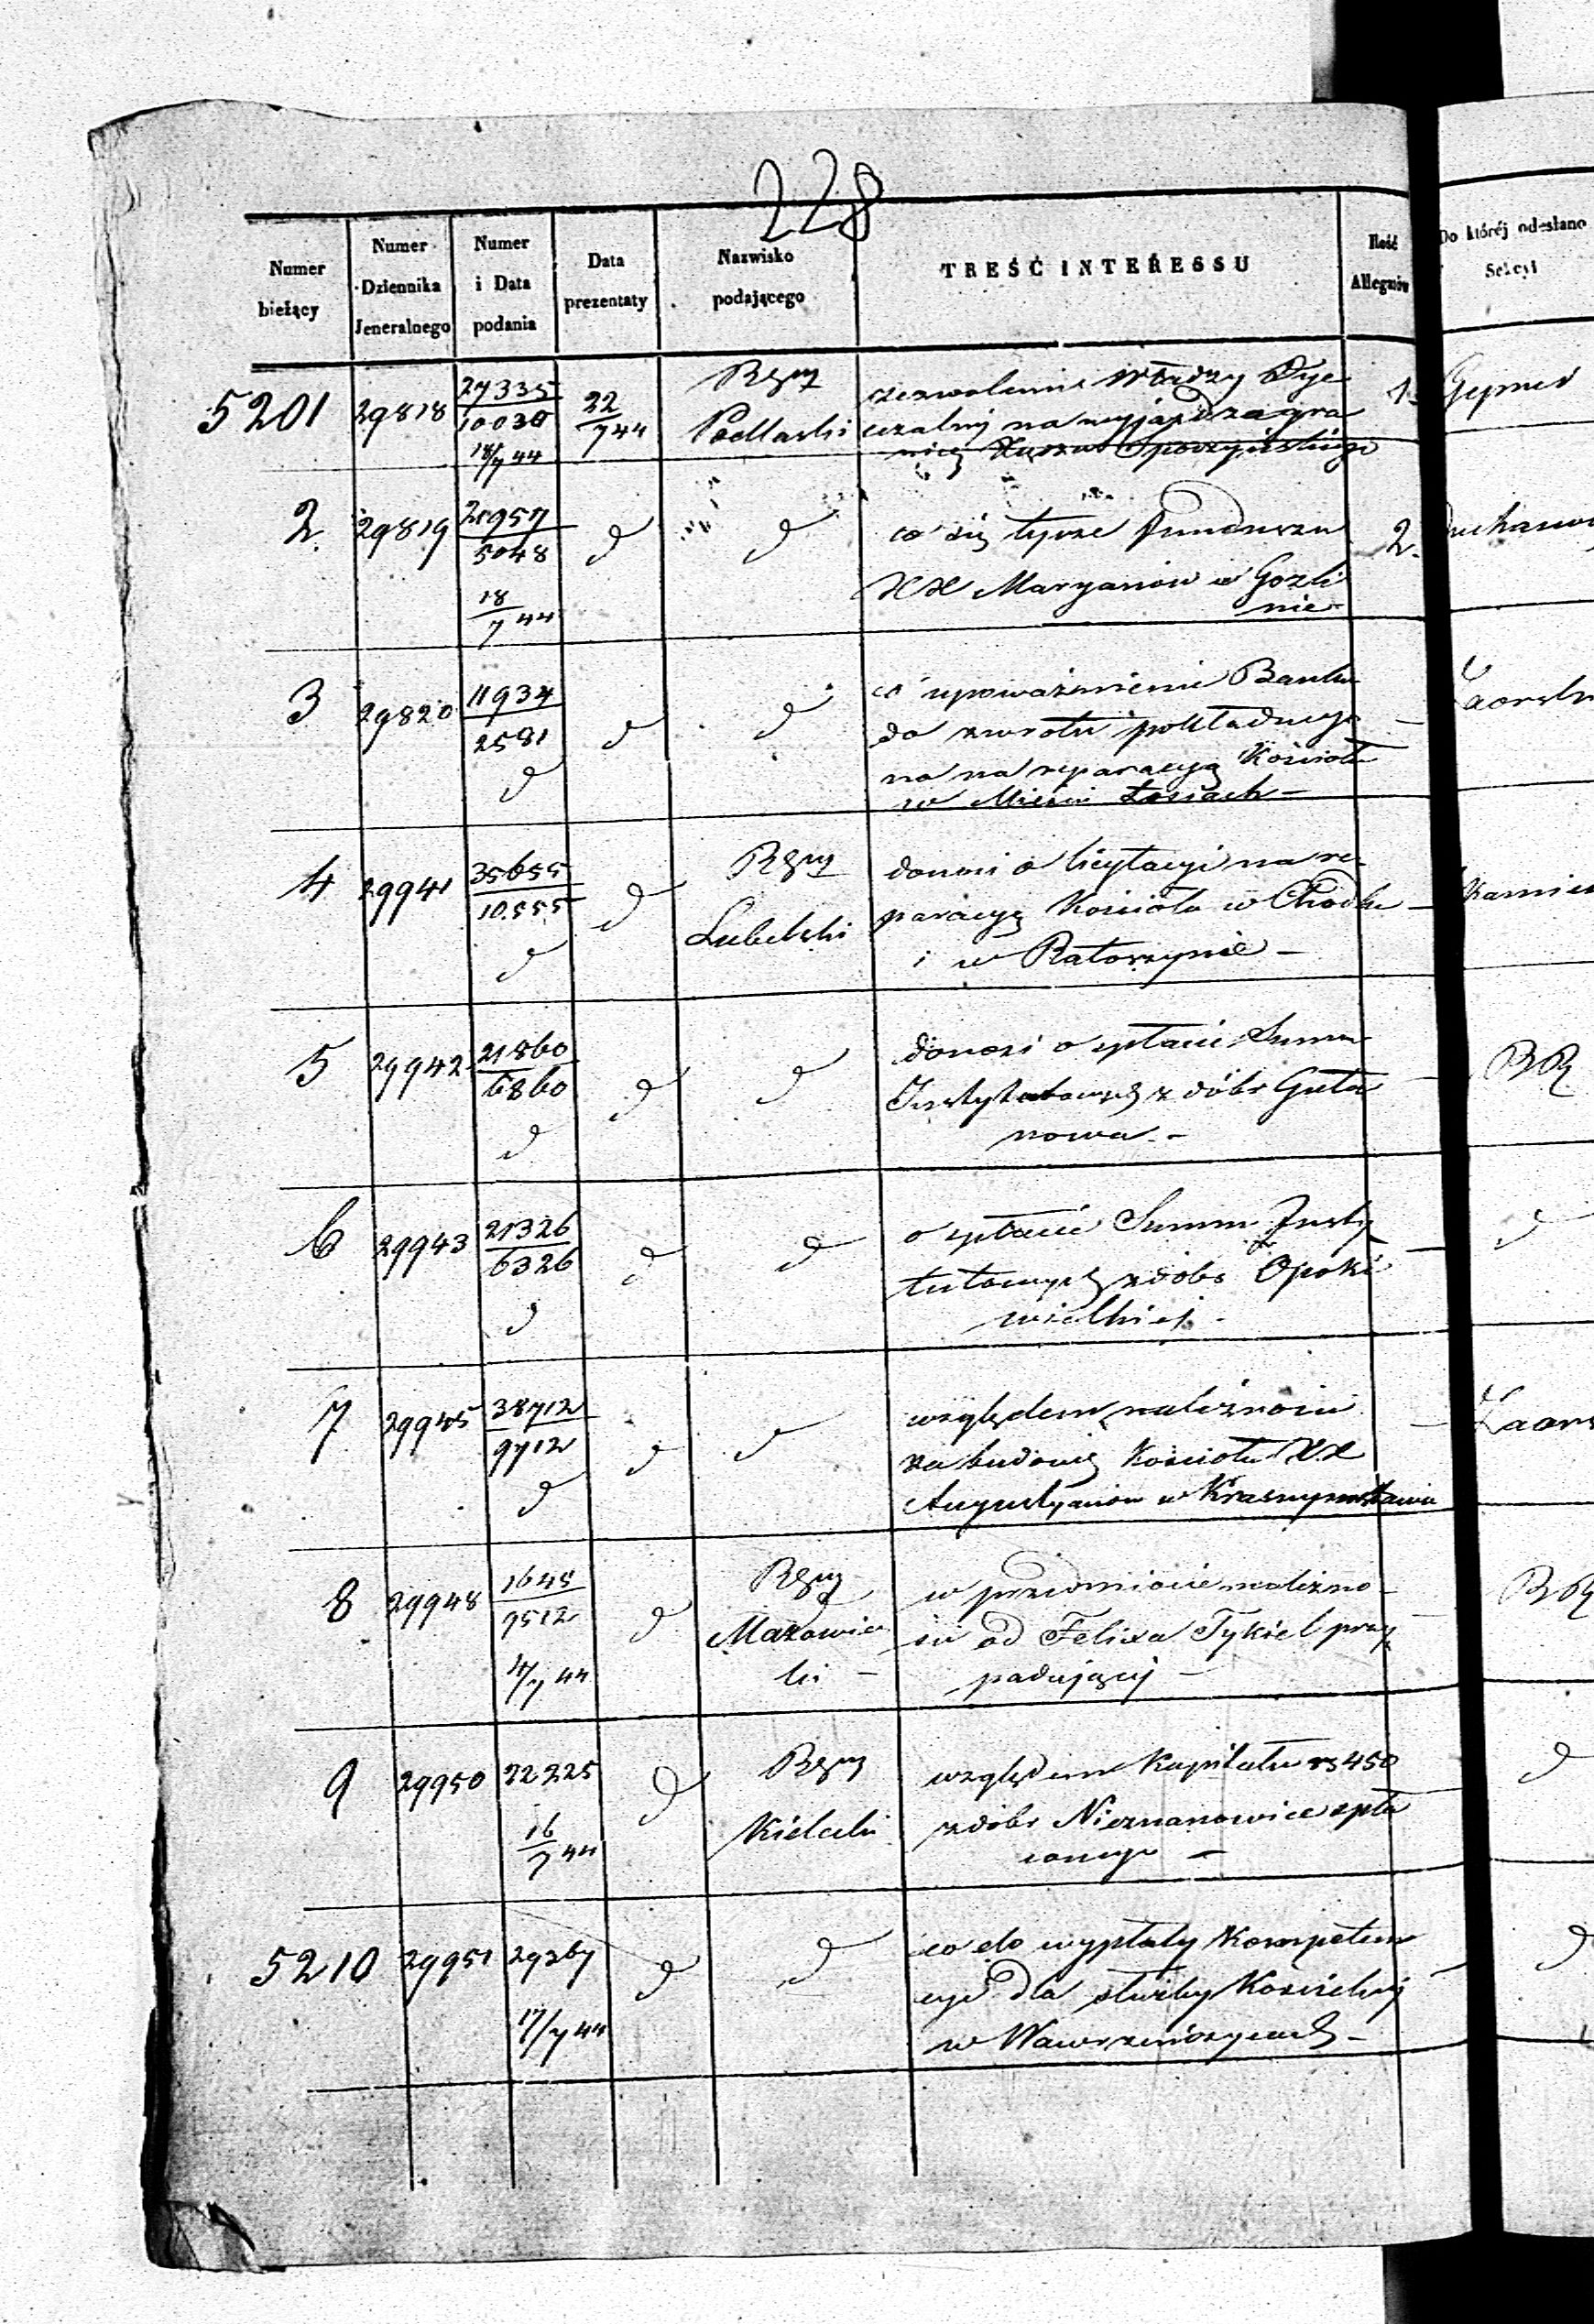 228
Numer bieżący
Numer Dziennika Jeneralnego
Numer i Data podania
Data prezentaty
Nazwisko podającego
TREŚĆ INTERESSU
Ilość Allegatów
Do któréj odesłano Sekcyi
5201 29818 27335/10030 18/7 44 22/7 44 Podlaski
zezwolenie Władzy Dye
czalnej na wyjazd zagra
nicę Opoczyńskiego
1.
2 29819 21957/5048 18/7 44 d d
co się tycze Funduszu
XX Maryanów w Goźli
nie
2.
3 29820 11934/2581 d d d
upoważnienie Banku
do zwrotu pokładnego
na reparacyą Kościoła
w
4 29941 35655/10.555 d d Lubelski
donosi o licytacyi na re-
paracyę Kościoła w Chodlu
i w Ratoszynie –
5 29942 21860/6860 d d d
donosi o spłacie Summ
Instytutowych z dóbr Guta
nowa. –
BR
6 29943 21326/6326 d d d
o spłacie Summ Insty
tutowych z dobr Opoki
wielkiej. –
d
7 29945 38712/9712 d d d
względem należności
za budowę Kościoła XX
Augustyanów w Krasnymstawie
8 29948 1645/9512 17/7 44 d Mazowiec
ki –
w przedmiocie należno-
ści od Felixa Tykiel przy
padającej –
BR
9 29950 22225 16/7 44 d Kielecki
względem Kapitału rs 450
z dobr Nieznanowice spła
conego –
d
5210 29951 29367 17/7 44 d d
co do wypłaty Kompeten
cyi dla służby Kościelnej
w Wawrzeńczycach –
d